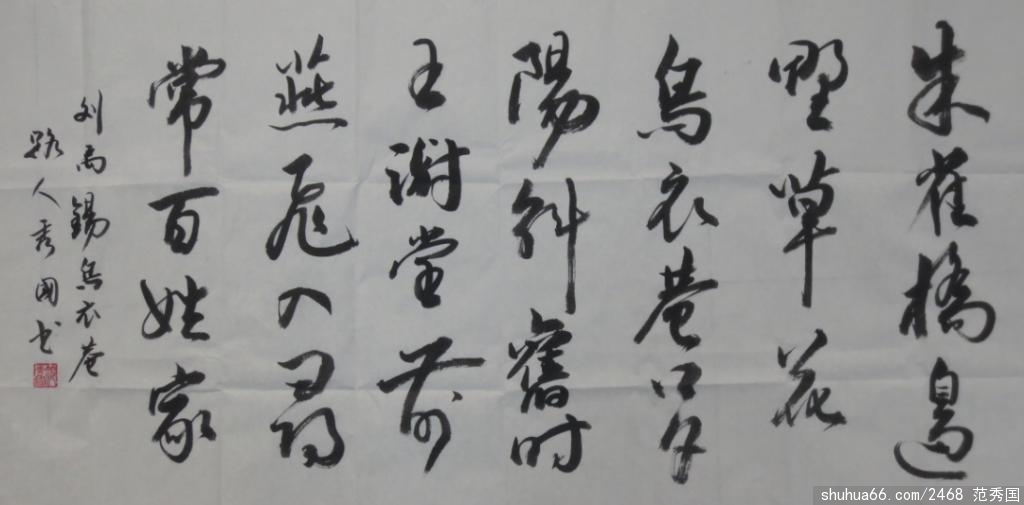 朱雀橋邊
野草花
烏衣巷口夕
陽斜舊时
王謝堂前
燕飛入尋
常百姓家
刘禹錫烏衣巷
路人秀國书
shuhua66.com/2468 范秀国